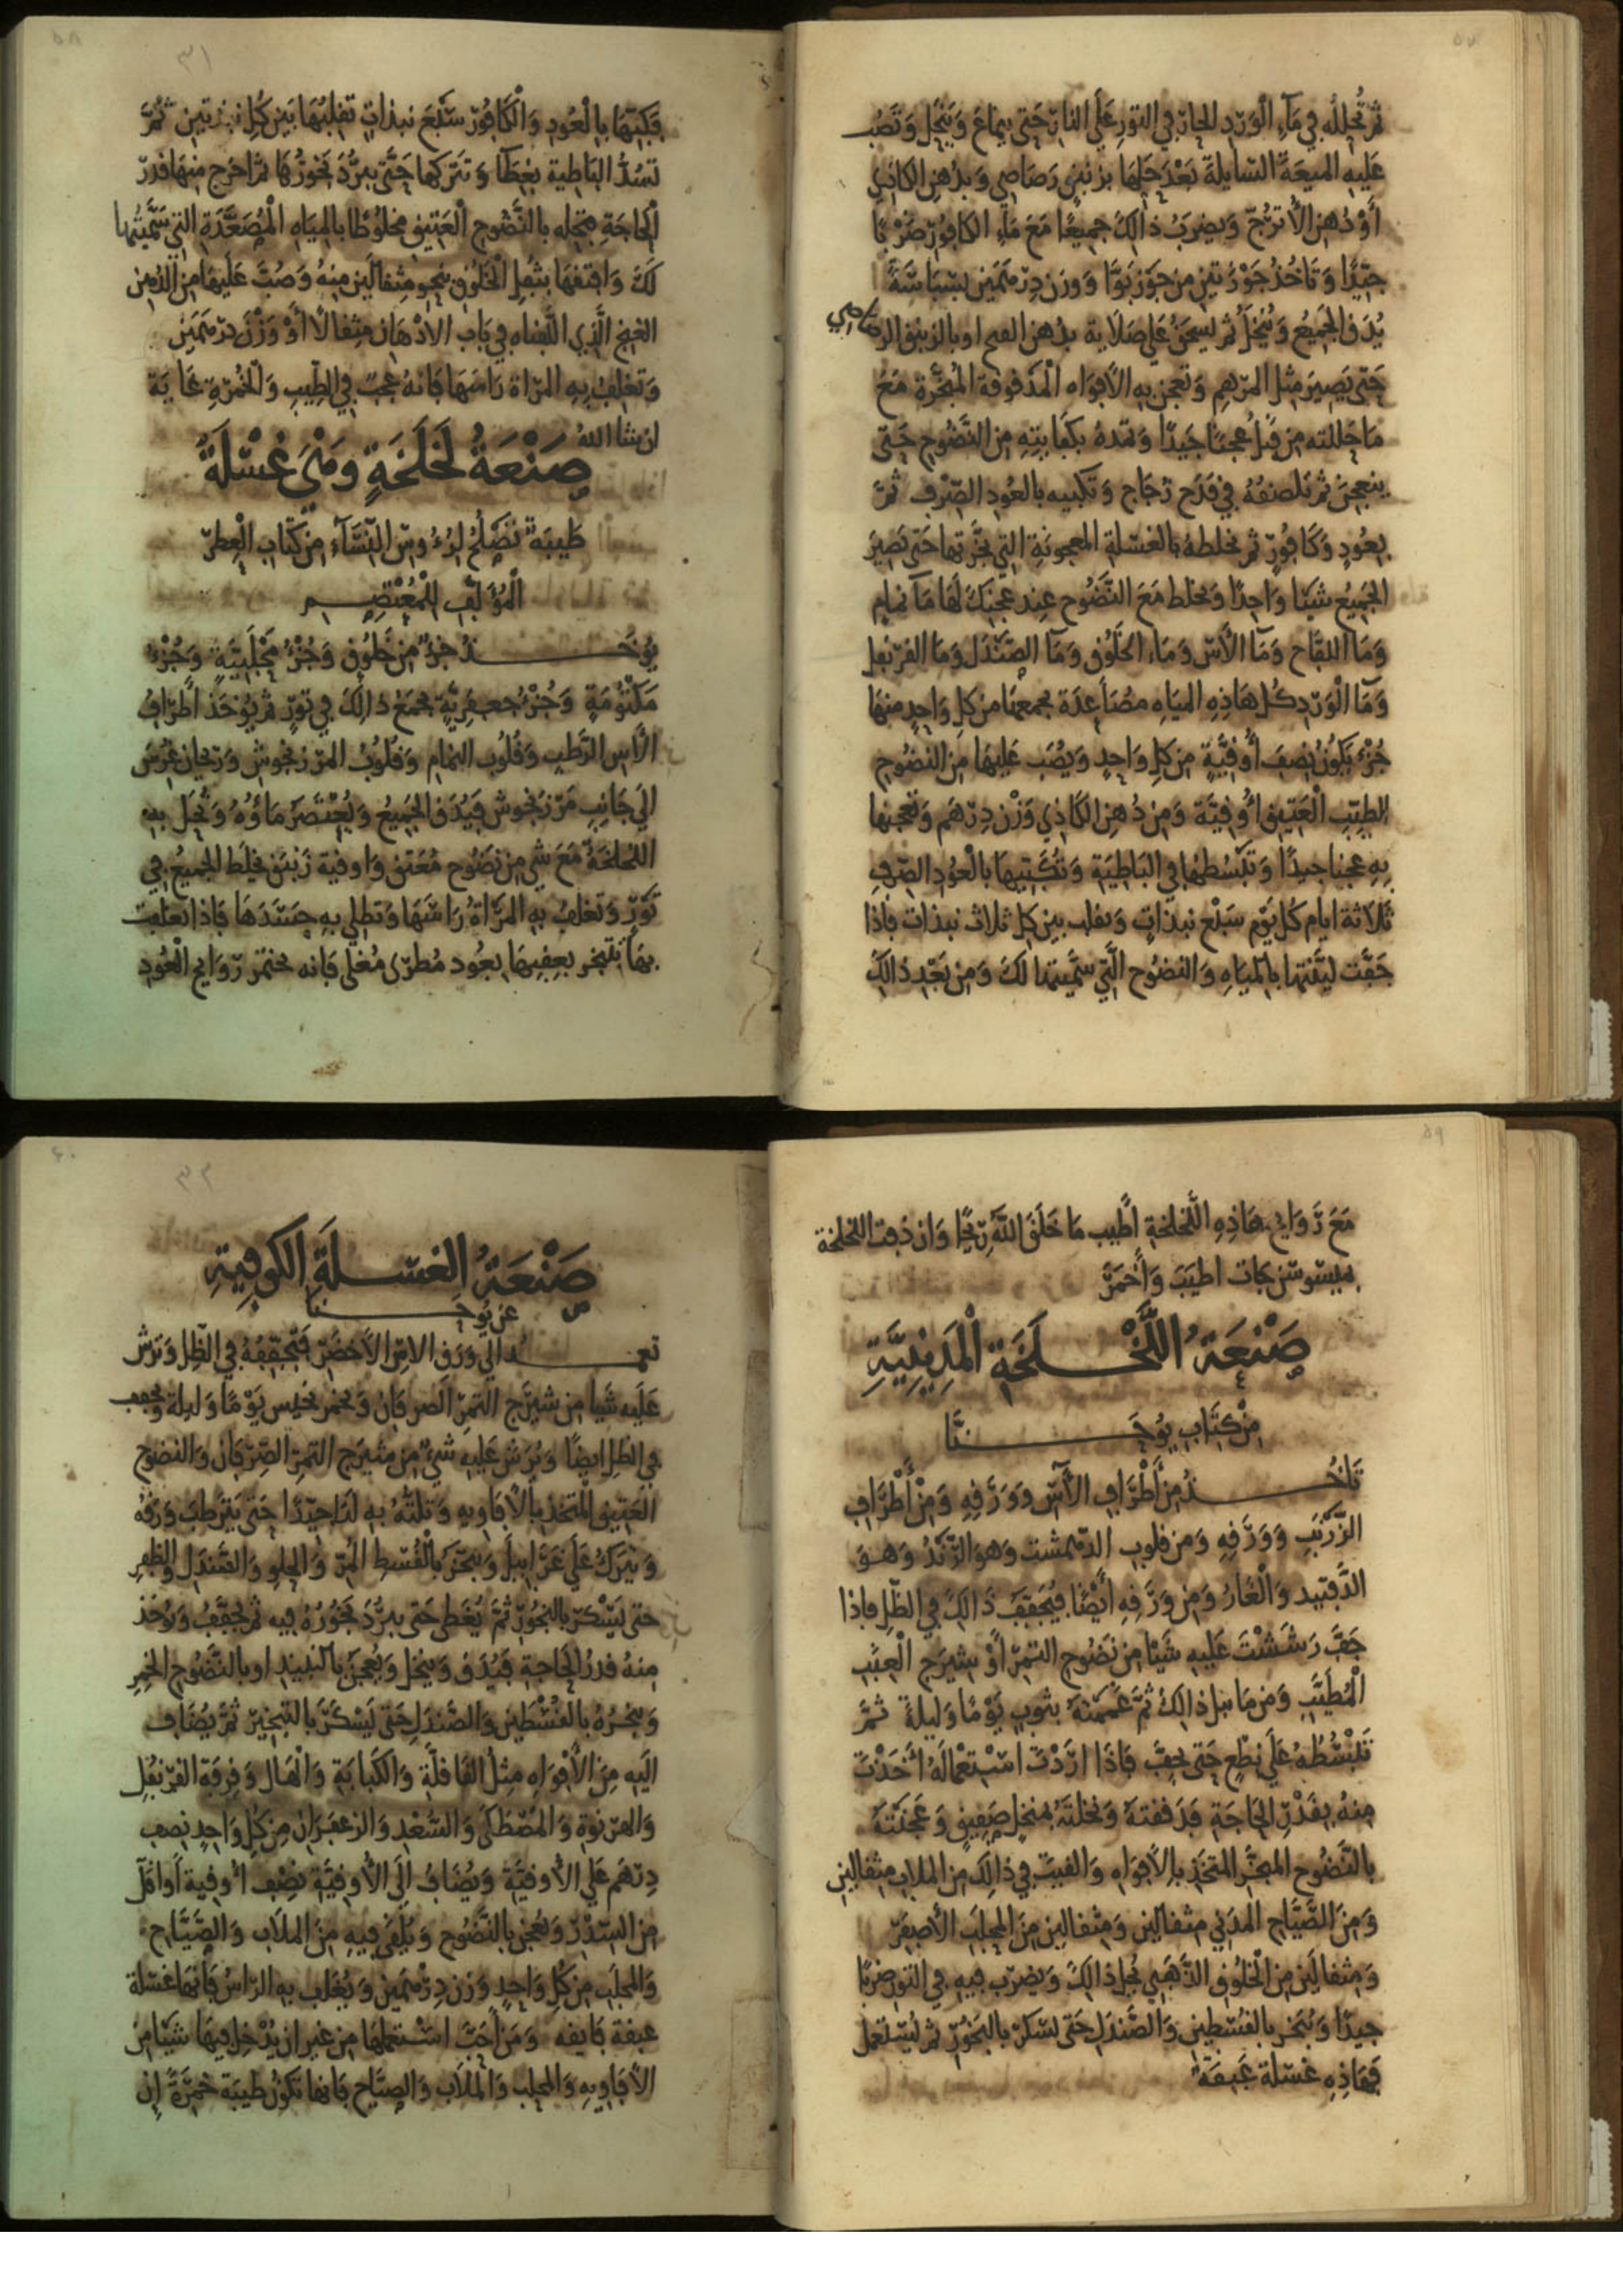 ٥٧
ثم تحلله في مَآءِ الْوَرْدِ الحارّ في التور عَلَى النار حَتى ينماعَ وَيَنْحَل وَتَصُب
عَليهِ الميعَةَ السّايلةَ بَعْدَ حَلهَا بزنبق رَصَاصي وَبدُهن الكاذي
أوْ دُهن الأترُجّ وَيضربُ ذالكَ جميعًا مَعَ مَاءِ الكافورِ ضَرْبًا
جيّدًا وَتَاخُذُ جَوْزتين من جَوْز بَوَّا وَوزن دِرْهَمَين بَسْبَاسَةً
يُدَق الجَميعُ وَيُنْخَلُ ثم يسحَقُ عَلى صَلَاية بدُهن او بالزنبق الرصاصي
حَتى يَصِيرَ مثل المرْهم وَتعجن به الأفوَاه الْمَدْقوقة المُبَخَّرة مَعَ
مَا حَللته من قَبلُ عجنًا جَيدًا وَتمدهُ بكفايتِهِ من النَّضُوح حَتى
ينعجن ثم تلصقهُ في قدَح زجَاج وَتكبيه بالعُودِ الصِّرْف ثمَّ
بعُودٍ وَكَافورٍ ثم تخلطهُ بالغسْلةِ المعجونَةِ التي بخَّرتها حَتى تَصِيرَ
الجَميعُ شيئا وَاحِدًا وَتخلط مَعَ النَّضُوح عِند عجنكَ لَهَا مَآ نمام
وَمَا اللقاح وَمَآ الآس وَمَاءَ الخَلُوق وَمَآ الصَّنْدَل وَمَا القرنفل
وَمَآ الْوَرْدِ كُل هَاذِهِ الميَاهِ مصَاعدَة تجمعهَا من كل وَاحِدٍ منهَا
جُزْءٌ يَكونُ نِصفَ أوقيَّةٍ من كل وَاحِدٍ وَيُصَب عَليهَا من النضُوحِ
الطيّبِ الْعَتيقِ أوقيَّة وَمن دُهن الكَاذِي وَزْن دِرْهَم وَتعجنها
بهِ عجنا جيدًا وَتَبْسُطهَا في البَاطيَةِ وَتُكَبّيهَا بالْعُودِ الصِّرفِ
ثَلاثة ايام كُل يَوْم سَبْع نبذاتٍ وَتقلب بين كل ثلاث نبذات فاِذا
جَفَّت ليَّنتها بالميَاهِ وَالنضُوح الَّتي سمَّيتها لكَ وَمن بَعْدِ ذالكَ
٥٨
٣١
فكَبّهَا بالْعُودِ وَالْكَافُورِ سَبْعَ نبذاتٍ تقلبُهَا بَين كُل نبذتين ثُمَّ
تَسُدُّ البَاطية بغِطَآ وَتَتركها حَتَّى يبرُدَ بَخورُهَا ثم اخرج منهَا قدرَ
الْحَاجَةِ فتحله بالنَّضُوحِ الْعَتيق مخلوُطًا بالميَاهِ الْمُصَعَّدَةِ التي سَمَّيتُها
لَكَ وَافتقهَا بثُفل الْخَلُوق نحو مِثقالَين منهُ وَصُبَّ عَلَيهَا من الدُهن
الَّذي الَّفناه في بَاب الادْهَان مثقالًا أوْ وَزْنَ دِرْهَمَين
وَتغلفُ بهِ المَرْاة رَاسَهَا فانهُ عجَبٌ في الطِّيبِ وَالخُمْرةِ غايَة
ان شا الله
صَنْعَةُ لَخْلَخَةٍ وهْيَ غِسْلَةٌ
طَيبَة تَصْلحُ لِرُءُوسِ النّسَآءِ من كتاب الْعِطرِ
الْمُؤَلَّفِ للْمُعْتَصِم
يوُخَذ جزءٌ من خَلُوقٍ وَجُزْءُ مَحْلَبيَّةٍ وَجُزْءُ
مَكْتُومَةٍ وَجُزْءُ جعفريَّةٍ يجمَعُ ذالكَ في تَورٍ ثم يُوخَذ أطرَافُ
الآس الرَّطبِ وَقُلُوب النمام وَقلُوبُ المرزنجوش وَرَيحان غرِسَ
الى جَانِبِ مَرْزنجوش فَيُدَق الجَميعُ وَيُعْتَصَرُ مَاؤُهُ وَتُحَل بهِ
اللخلخةُ مَعَ شي من نَضُوحٍ مُعَتق وَاوقية زنبق يخلَط الجميعُ في
تَوْرٍ وَتغلفُ به المَرْأةُ رَاسَهَا وَتطلى بهِ جَسَدَهَا فاذا تعلفت
بهَا تتبخر بعقبهَا بعُود مُطَرّى مُغلى فانه تختمر رَوَايح الْعُودِ
٥٩
مَعَ رَوَايح هَاذِهِ اللَّخلخةِ أطيب مَا خَلَقَ اللَّهُ رِيحًا وَان دُفت اللخلخة
بميسوسن كانت اطيَبَ وَأخمَرَ
صَنْعَةُ اللَّخْلَخَةِ الْمَدِينِيَّةِ
مِنْ كتَابِ يوُحَنَّا
تَاخُذُ مِن أَطْرَافِ الآس وَوَرَقِهِ وَمِنْ أَطْرَافِ
الزَّرْنَبِ وَوَرَقِهِ وَمن قلوب الدهمشت وَهوَ الرَّنْدُ وَهوَ
وَالْغَارُ وَمِن وَرَقِهِ أَيْضًا فيُجَففُ ذَالكَ في الظِّلِ فاِذا
جَفَّ رَشَشْتَ عَلَيهِ شَيئًا مِن نَضُوحِ التمرِ أوْ بشيرَجِ الْعِنَبِ
الْمُطَيَّبِ وَمن مَا ذالكَ ثمَّ غَممْتَهُ بثوبٍ يَوْمًا وَليلةً ثمَّ
تَبْسُطهُ عَلَى نِطْعٍ حَتى يجفّ فاَذَا ارَدْتَ اسْتعْمَالَهُ أخَذْتَ
مِنهُ بقَدْرِ الحاجَةِ فدَققتهُ وَنخلتَهُ بمنخلٍ صَفِيقٍ وَعَجَنْتَهُ
بالنَّضُوح المبخَّرِ المتخَذ بالأفوَاه وَالقيتَ في ذالكَ مِن الملاب مثقالين
وَمن الصَّيَّاحِ المدَني مثقالَين وَمِثقالين مِنَ المحلَبِ الأصفَر
وَمثقالَين من الْخَلُوق الذَّهَبي تحُل ذالكَ وَيضرَب فيه في التور ضربًا
جيدًا وَيُبَخر بالقُسْطين وَالصَّندَل حَتى يسْكرَ بالبَخُور ثم يُسْتعمل
فهَاذِهِ غسْلة عَبِقَة
٦٠
٣٢
صَنْعَةُ الغسْلَةِ الكوفيةِ
عن يوُحَنا
تعمدُ الى وَرَق الاس الأخضَر فتُجَففُهُ في الظِّل وَتَرُش
عَلَيه شَيا من شيرَج التمرِ الصرفان وَتخمر يَوْمًا وَليلة وَيجفف
في الظل ايضًا وَيُرَش عَلَيهِ شَيءٌ من شيرَج التمرِ الصّرَفان وَالنضوح
العَتيق المتخذ بالأفاويهِ وَتلتُّهُ بهِ لَتًا جيّدًا حَتى يَترَطبَ وَرَقهُ
وَيترَكُ عَلَى غَرَابيل وَيُبَخَّرُ بالْقُسْط المُرّ وَالحلوِ وَالصَّندَل وَالظفرِ
حَتى يَسْكَرَ بالبَخُورِ ثمَّ يُغَطى حَتى يبرُدَ بَخُورُهُ فيه ثم يجَفّفُ وَيوُخَذ
مِنهُ قدرُ الحَاجَةِ فيُدَق وَيُنخَل وَيُعجَنُ بالنبيذِ او بالنَّضُوحِ الخمِرِ
وَيبخرهُ بالقُسْطَين وَالصَّندَلِ حَتى يَسْكَرَ بالتبخيرِ ثمَّ يُضَاف
الَيهِ مِنَ الأفوَاهِ مثلُ القاقلَّةِ وَالكَبابَةِ وَالهَال وَقِرفةِ القَرَنفُلِ
وَالهَرْنوَةِ وَالمُصْطكَى وَالسُّعْدِ وَالزعفرَان مِن كُل وَاحِدٍ نِصف
دِرْهَم عَلى الأوقيَّةِ وَيُضَافُ الَى الأوقيَّة نِصْف أوقية
مِنَ السّدْرِ وَتعجن بالنَّضُوحِ وَيُلقى فيهِ مِنَ الملَاب وَالصَّيَّاح
وَالمحلَب مِن كل وَاحِدٍ وَزن دِرْهَمَين وَيُغلَف بهِ الرَّاسُ فانهَا غسْلة
عبقة فايقة وَمَن أحَبَّ اسْتعملهَا مِن غير ان يُدْخِل فيهَا شَيئا مِنَ
الأفاويهِ وَالمحلب وَالمَلاب وَالصيَّاح فانها تكونُ طيبَة خَمِرَةً إن